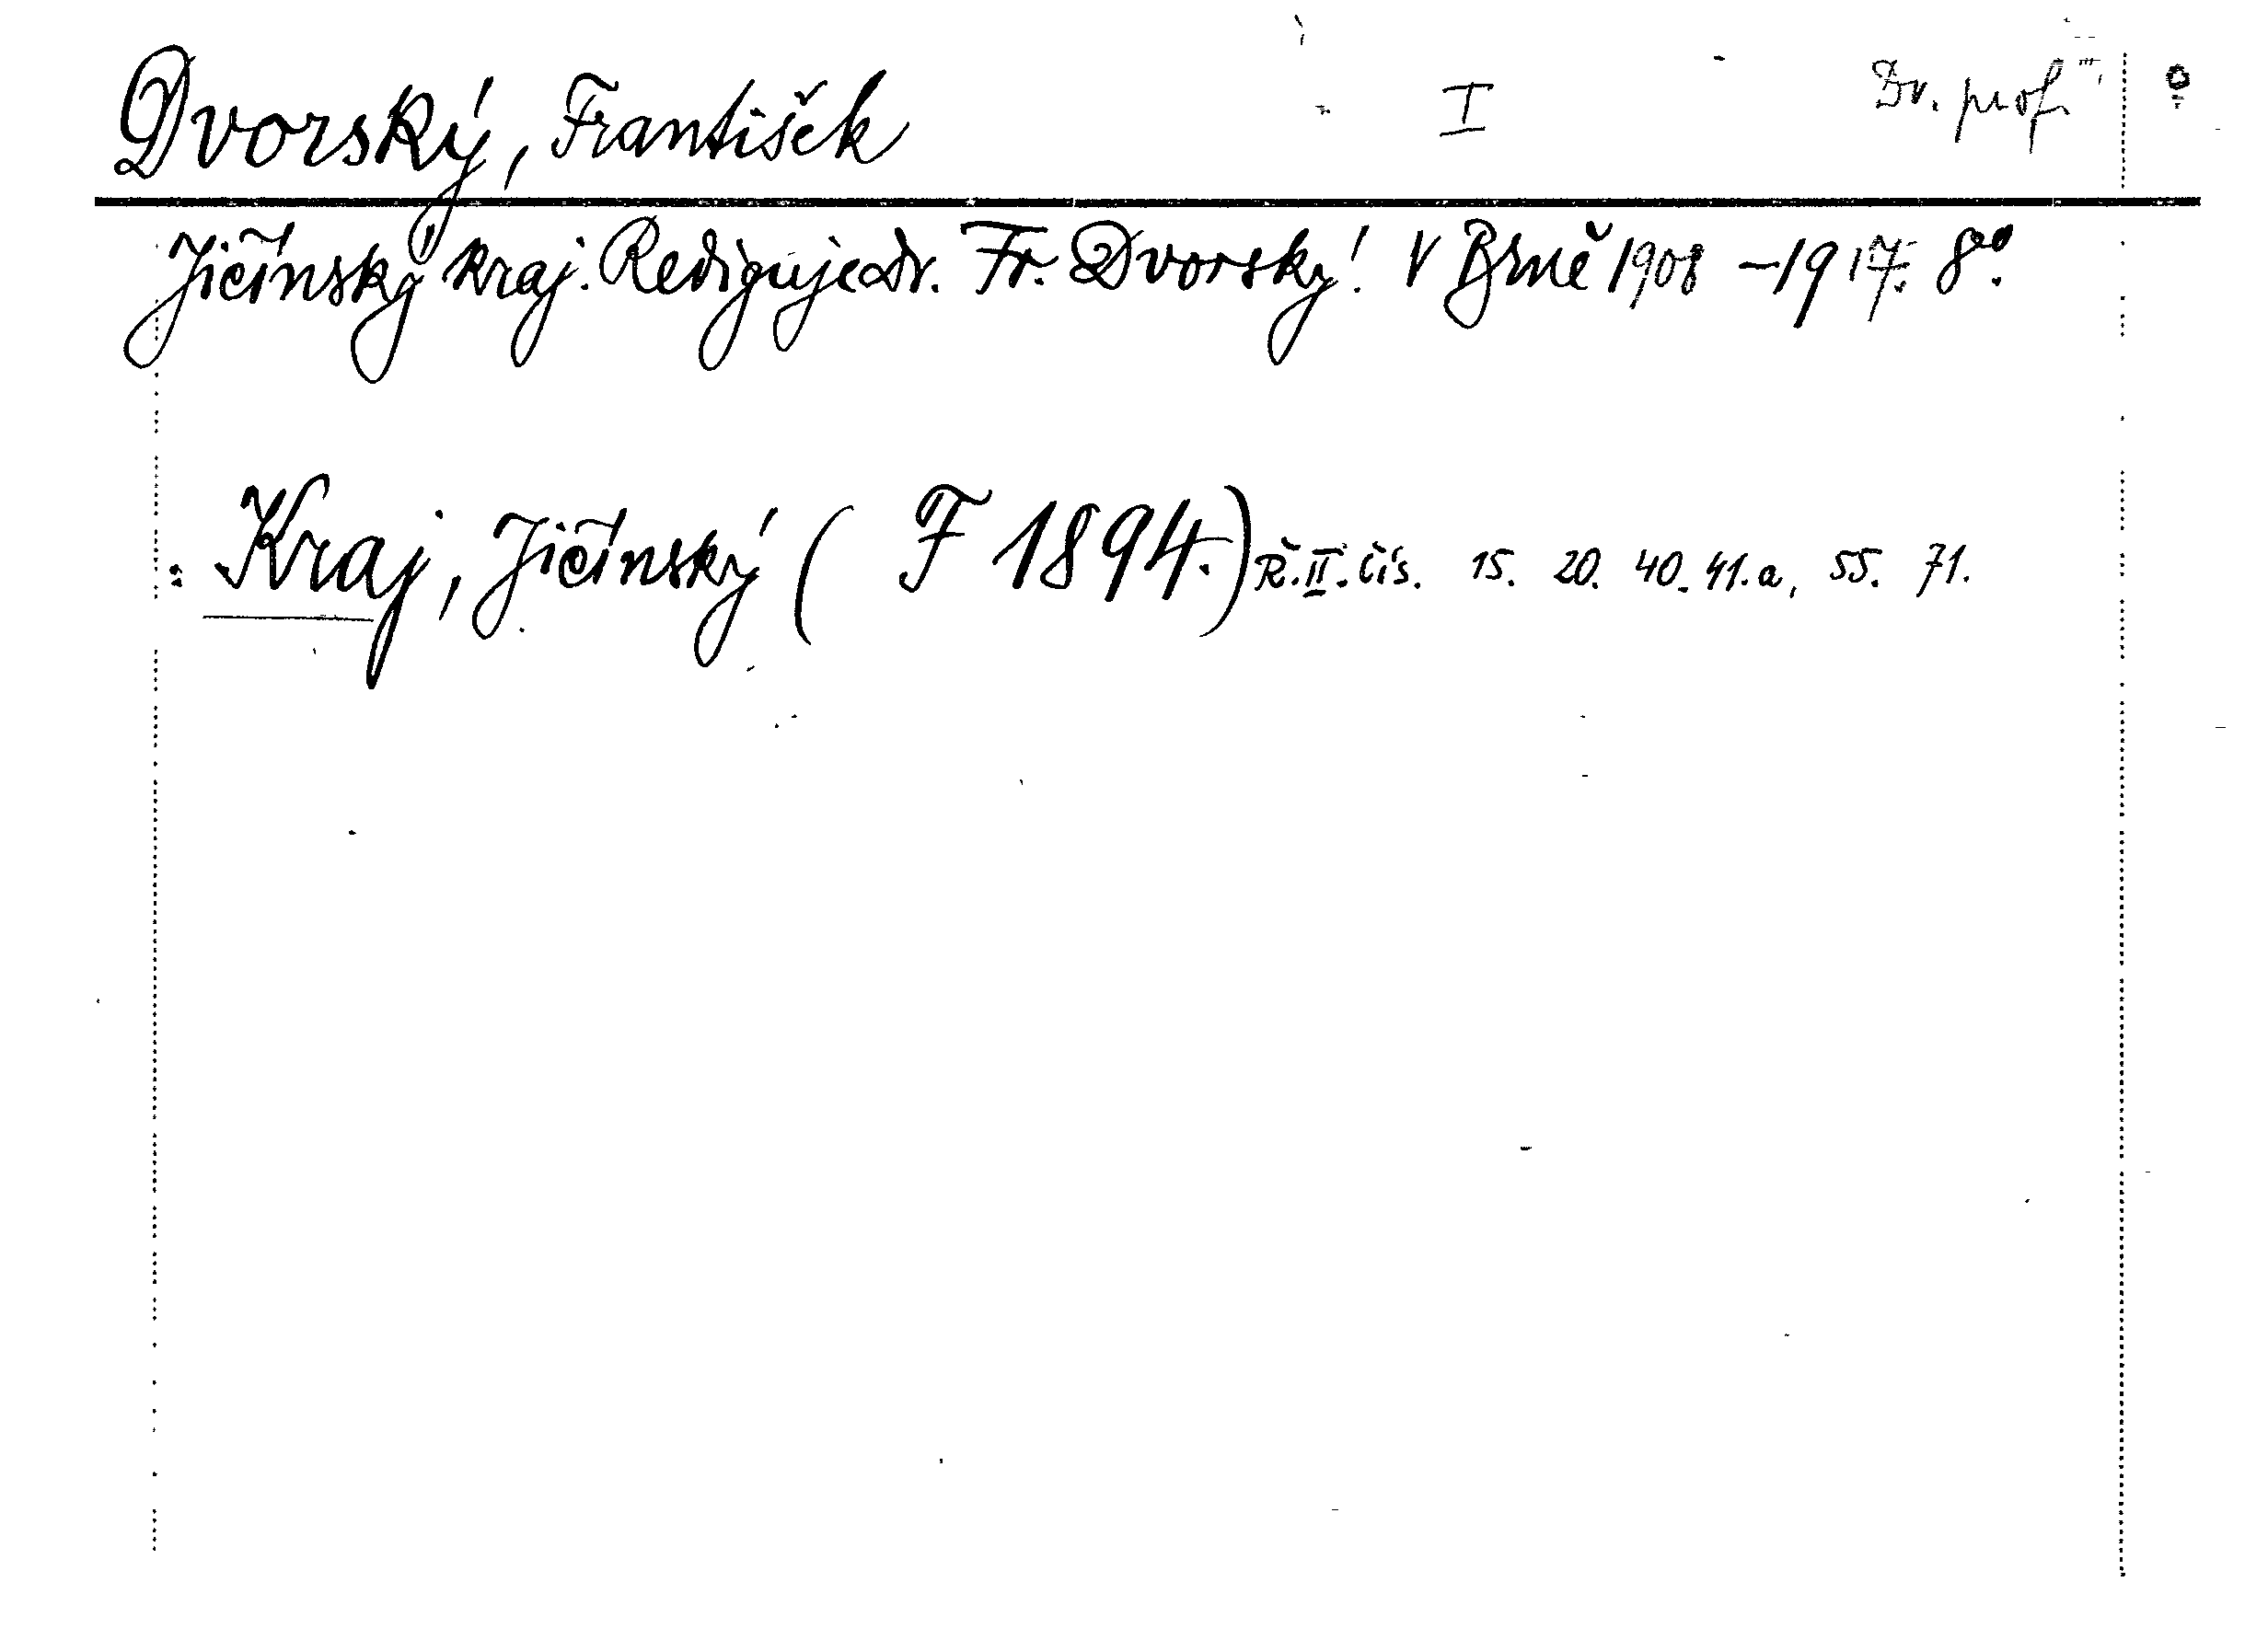 Dvorský, František I Dr. prof.
Jičínský kraj. Rediguje Dr. Fr. Dvorský. V Brně 1908 - 1917. 8º.
Kraj, Jičínský ( F 1894.) Ř. II. čís. 15. 20. 40. 41. a, 55. 71.